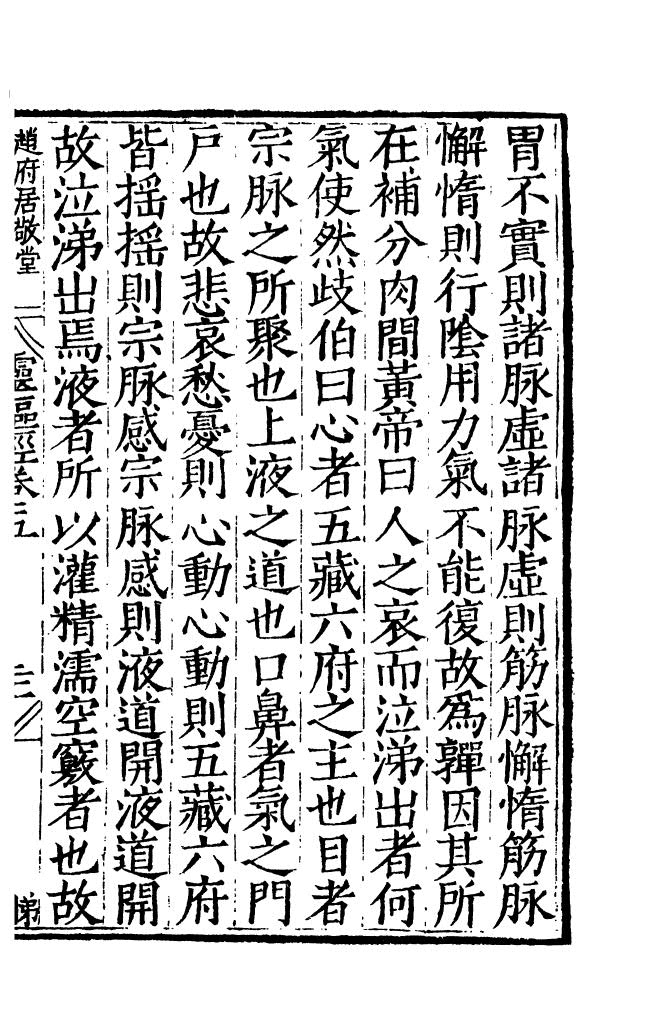 胃不實則諸脉虛諸脉虛則筋脉懈惰筋脉
懈惰則行陰用力氣不能復故爲嚲因其所
在補分肉間黃帝曰人之哀而泣涕出者何
氣使然歧伯曰心者五藏六府之主也目者
宗脉之所聚也上液之道也口鼻者氣之門
戶也故悲哀愁憂則心動心動則五藏六府
皆搖搖則宗脉感宗脉感則液道開液道開
故泣涕出焉液者所以灌精濡空竅者也故
趙府居敬堂 靈樞經卷五 三